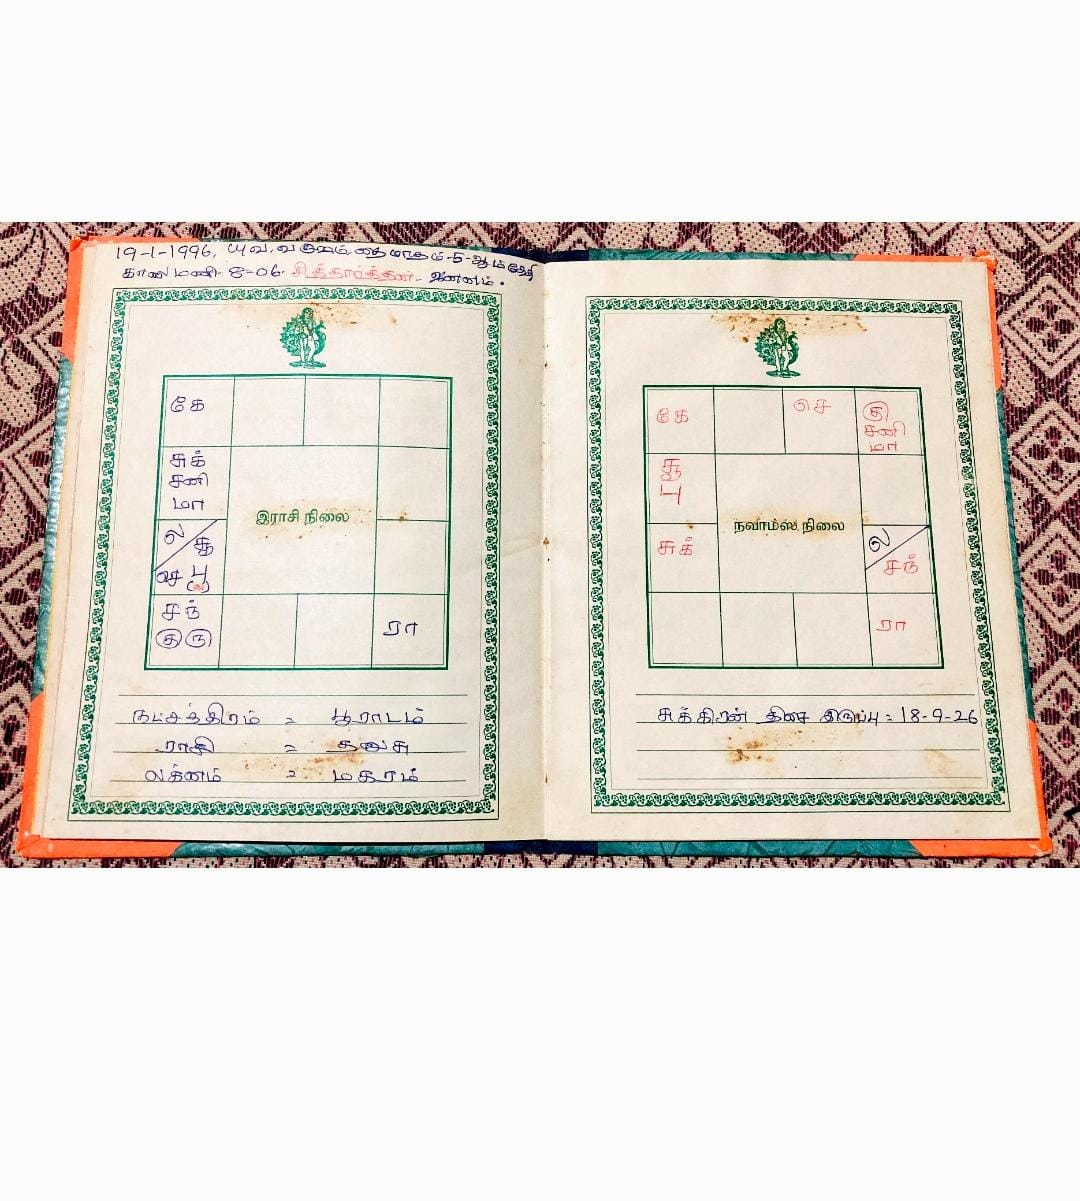 19-1-1996, யுவ, வருஷம், தை மாதம்-5-ஆம் தேதி
காலை மணி 8-06. சித்தார்த்தன் - ஜனனம்.
கே
சுக்
சனி
மா
ல
சூ
செ பு
சந்
குரு
ரா
இராசி நிலை
நட்சத்திரம் = பூராடம்
ராசி = தனுசு
லக்னம் = மகரம்
கே
செ
கு
சனி
மா
சூ
பு
சுக்
ல
சந்
ரா
நவாம்ஸ் நிலை
சுக்கிரன் திசை இருப்பு = 18-9-26